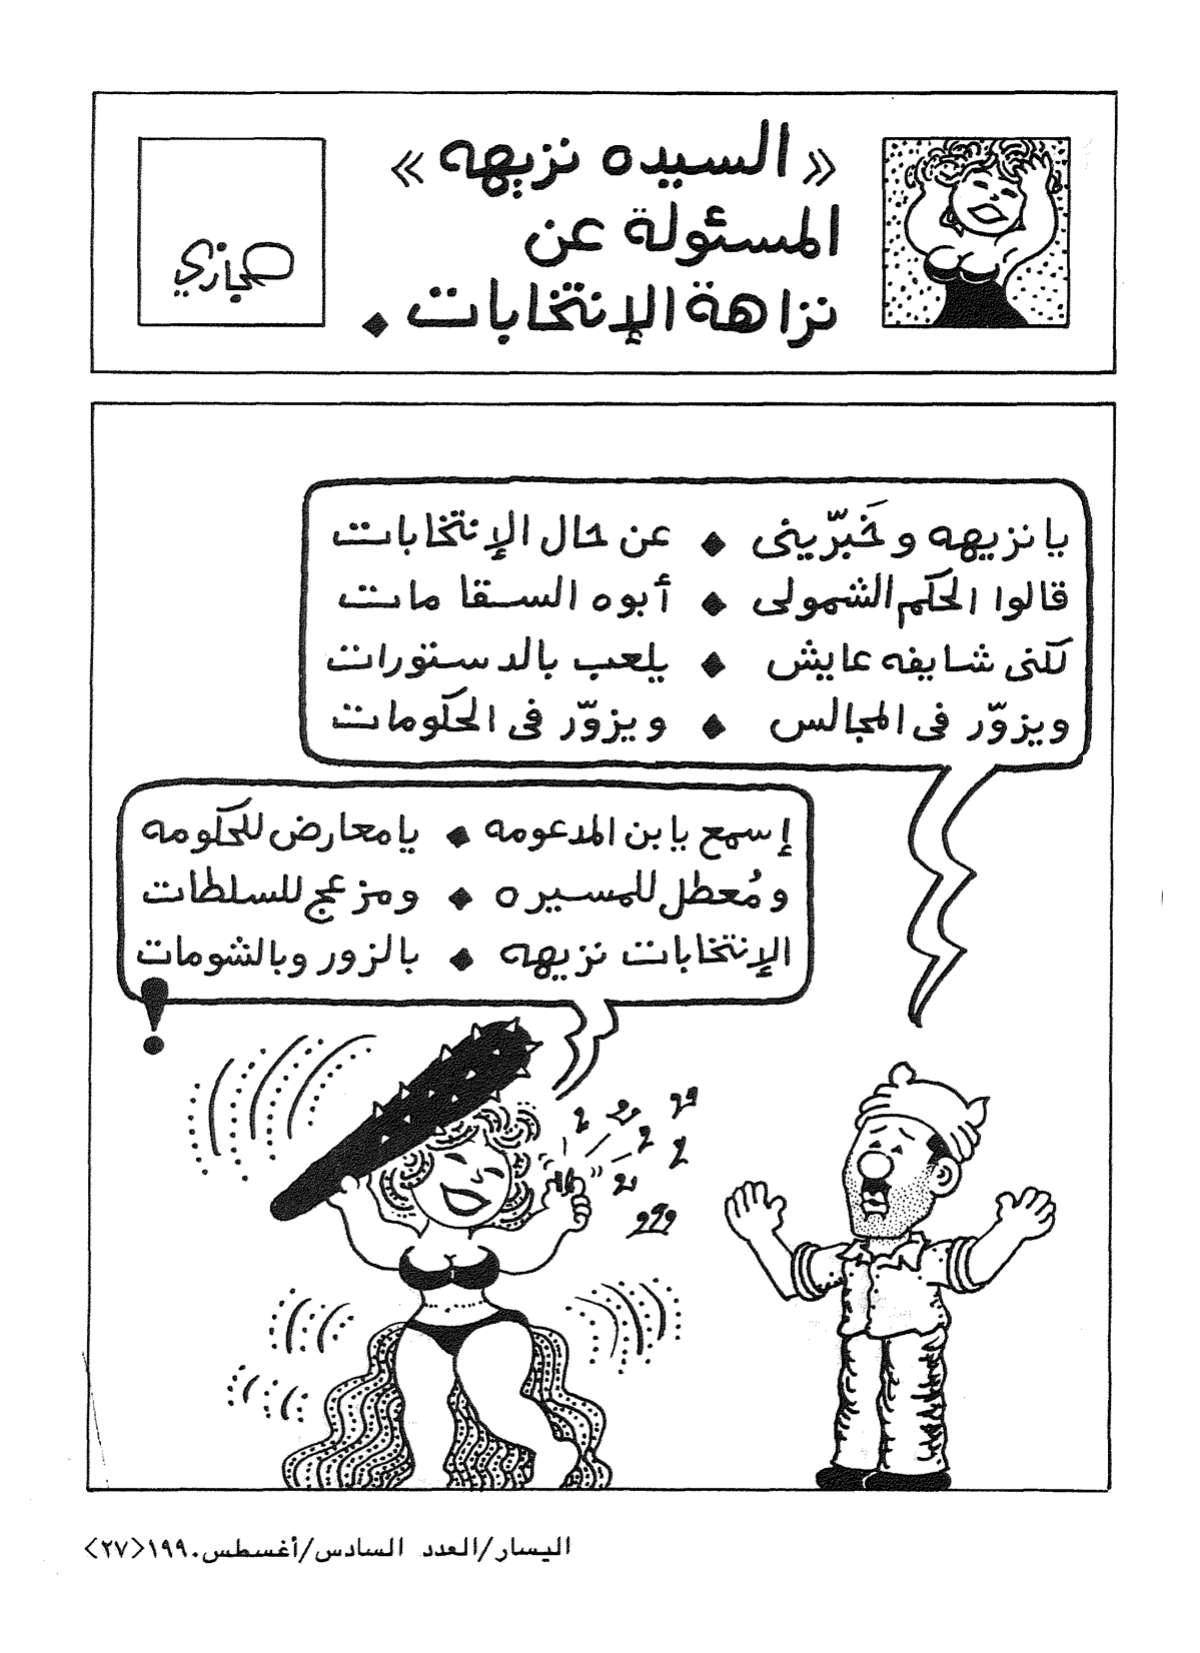 « السيده نزيهه »
المسئولة عن
نزاهة الإنتخابات ◆
حجازي
يا نزيهه وخَبّرينى ◆ عن حال الإنتخابات
قالوا الحكم الشمولى ◆ أبوه السقا مات
لكنى شايفه عايش ◆ يلعب بالدستورات
ويزوّر فى المجالس ◆ ويزوّر فى الحكومات
إسمع يا بن المدعومه ◆ يا معارض للحكومه
ومُعطل للمسيره ◆ ومزعج للسلطات
الإنتخابات نزيهه ◆ بالزور وبالشومات !
اليسار/العدد السادس/أغسطس١٩٩٠<٢٧>